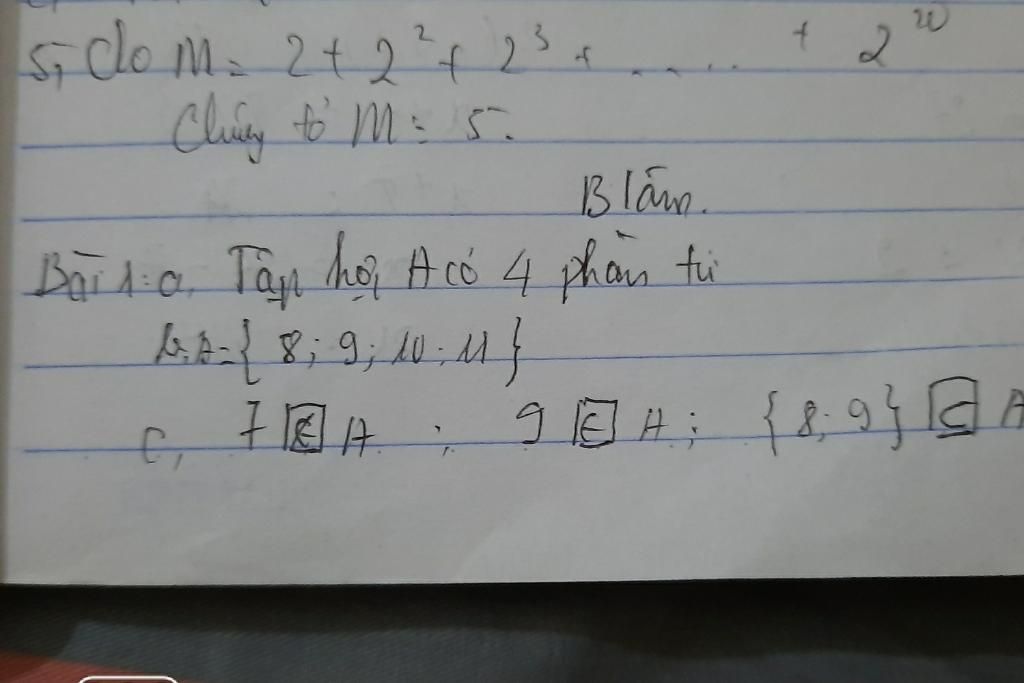 5, Cho M = 2 + 2² + 2³ + ..... + 2²⁰
Chứng tỏ M ⋮ 5.
B làm.
Bài 1: a, Tập hợi A có 4 phần tử
b, A = { 8 ; 9 ; 10 ; 11 }
c, 7 ∉ A ; 9 ∈ A ; { 8 ; 9 } ⊂ A